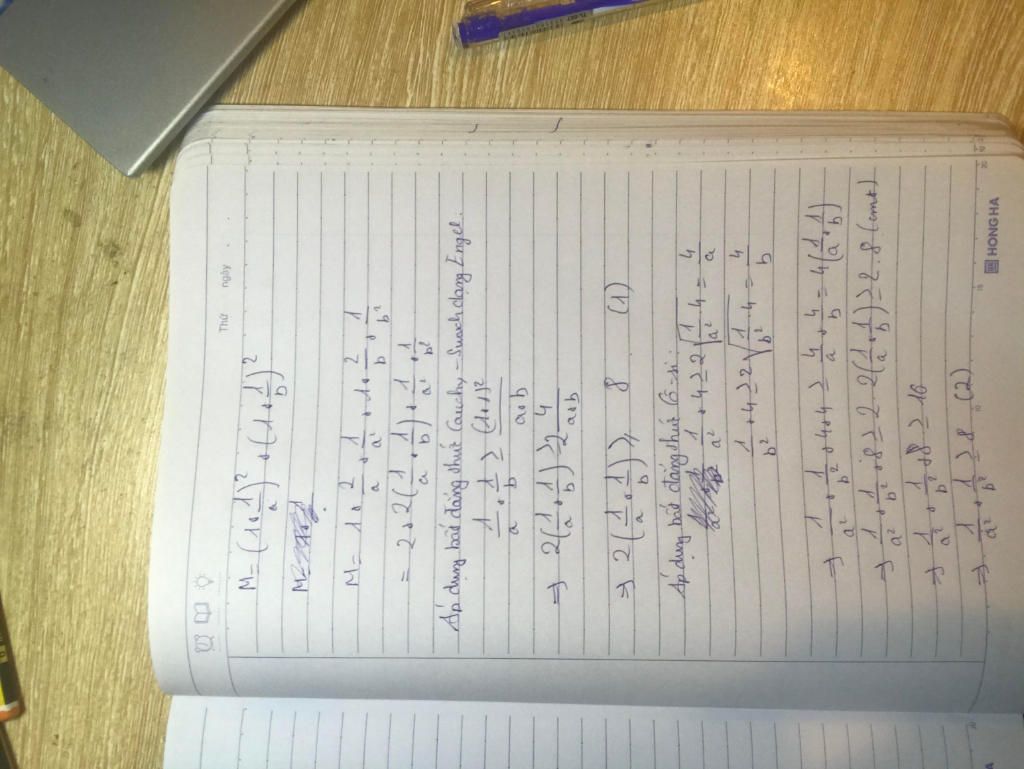 Thứ ngày
M = (1 + 1/a)² + (1 + 1/b)²
M
M = 1 + 2/a + 1/a² + 1 + 2/b + 1/b²
= 2 + 2(1/a + 1/b) + 1/a² + 1/b²
Áp dụng bất đẳng thức Cauchy - Swach dạng Engel.
1/a + 1/b ≥ (1+1)²/a+b
⇒ 2(1/a + 1/b) ≥ 2 4/a+b
⇒ 2(1/a + 1/b) ≥ 8 (1)
Áp dụng bất đẳng thức Cô-si:
1/a² + 4 ≥ 2√(1/a² · 4) = 4/a
1/b² + 4 ≥ 2√(1/b² · 4) = 4/b
⇒ 1/a² + 1/b² + 4 + 4 ≥ 4/a + 4/b = 4(1/a + 1/b)
⇒ 1/a² + 1/b² + 8 ≥ 2 · 2(1/a + 1/b) ≥ 2 · 8 (cmt)
⇒ 1/a² + 1/b² + 8 ≥ 16
⇒ 1/a² + 1/b² ≥ 8 (2)
HONG HA